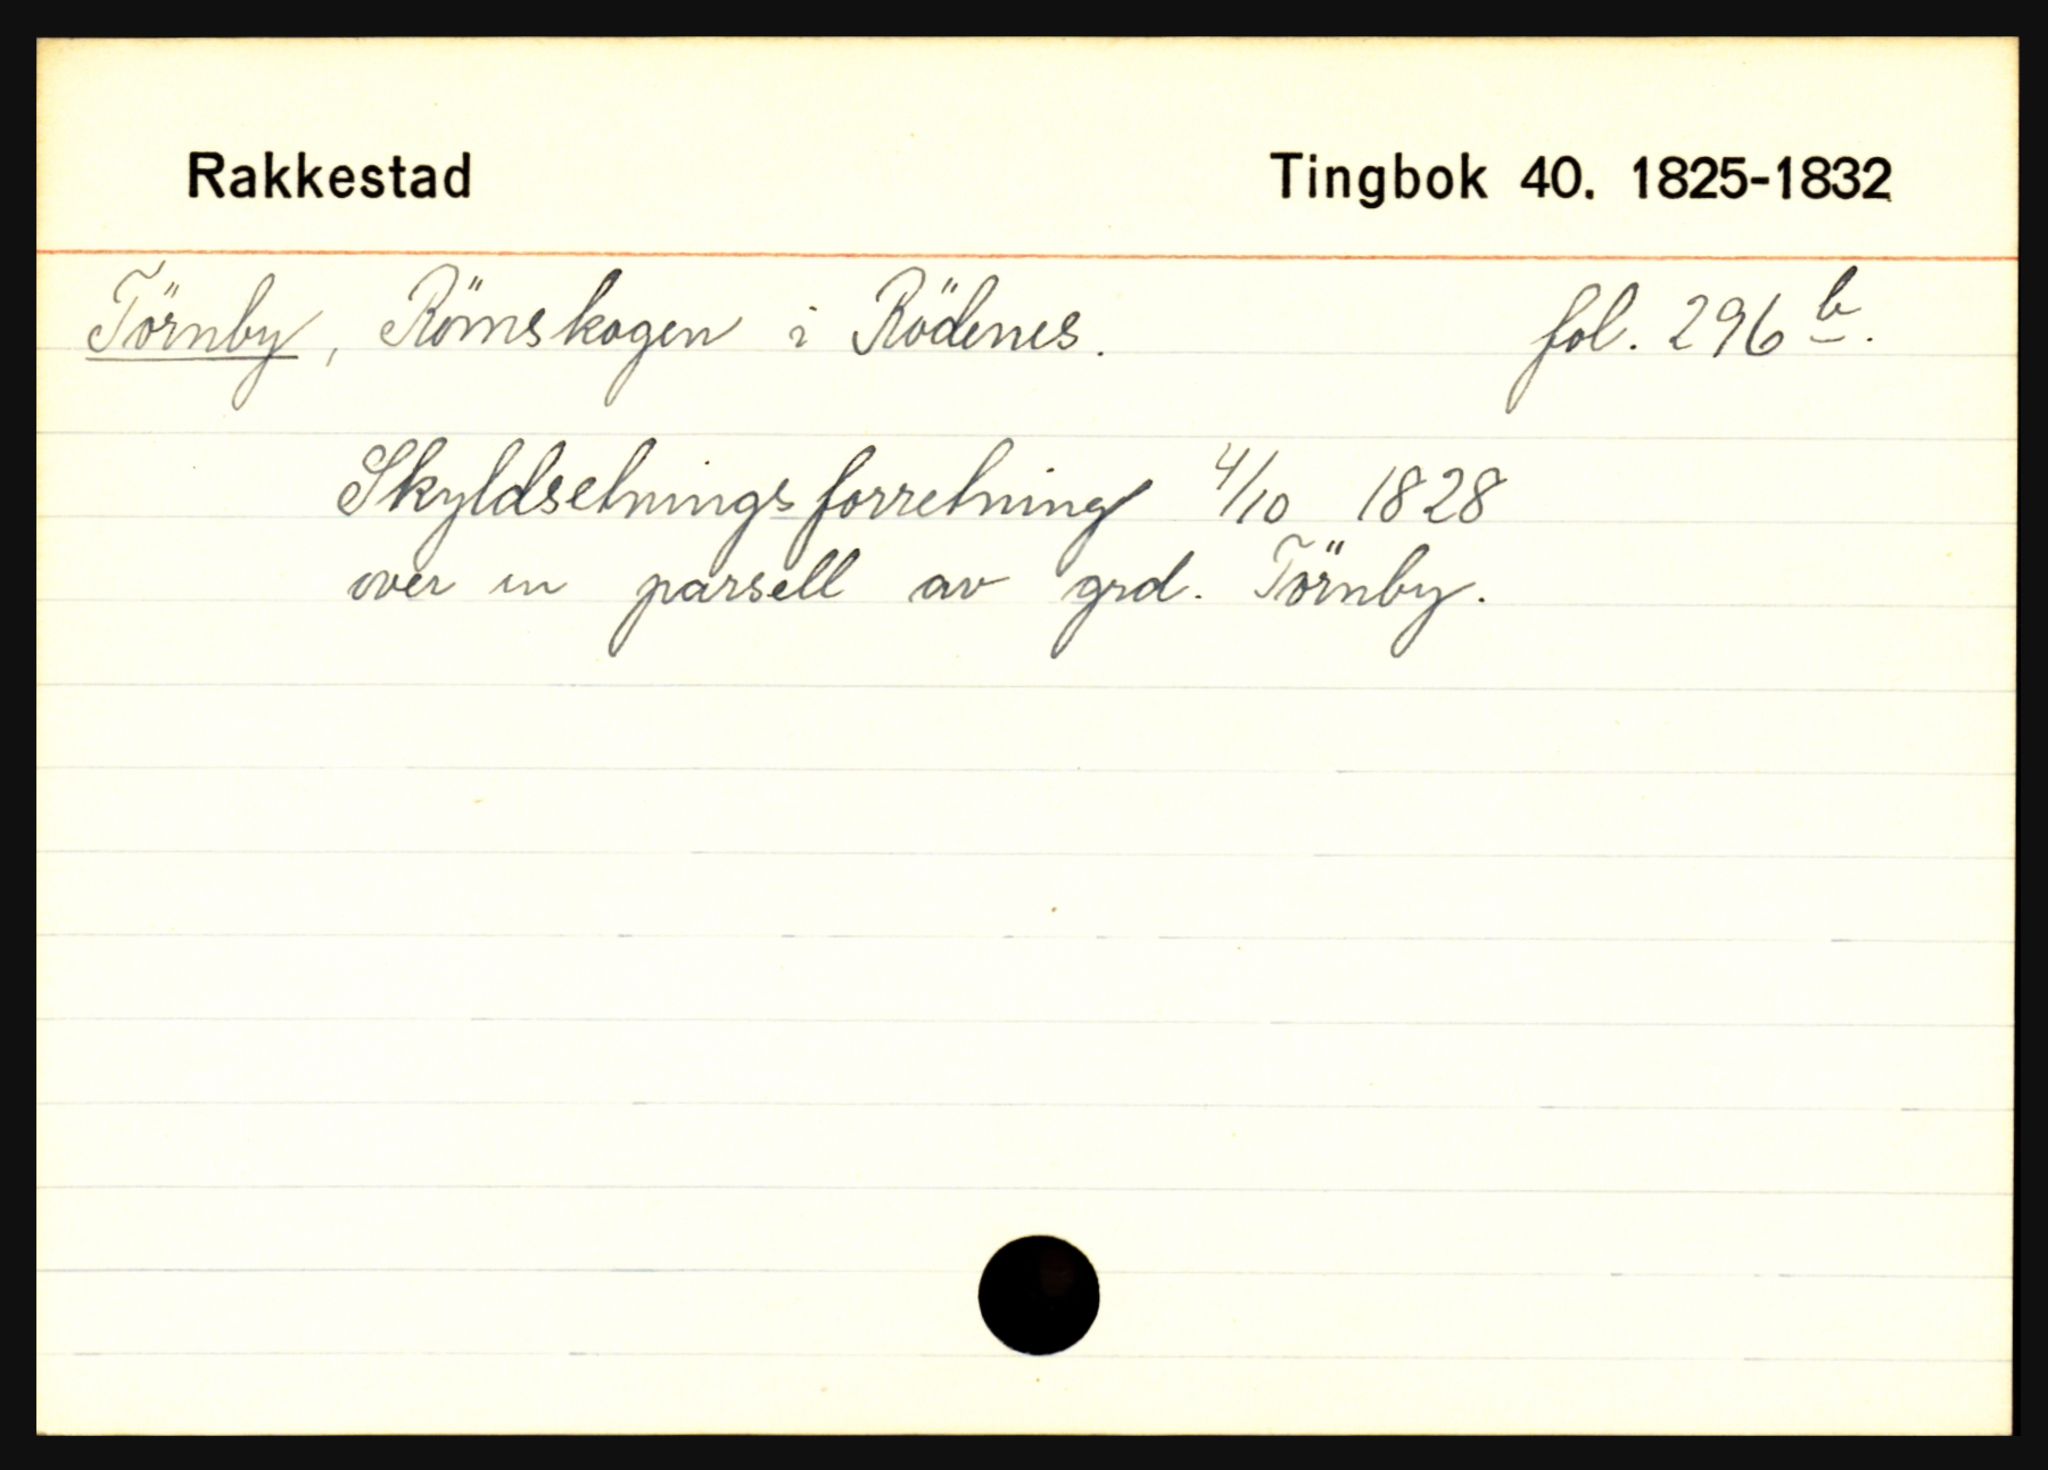 Rakkestad Tingbok 40. 1825-1832
Törnby, Römskogen i Rödenes. fol. 296 b.
Skyldsetningsforretning 4/10 1828
over en parsell av grd. Törnby.